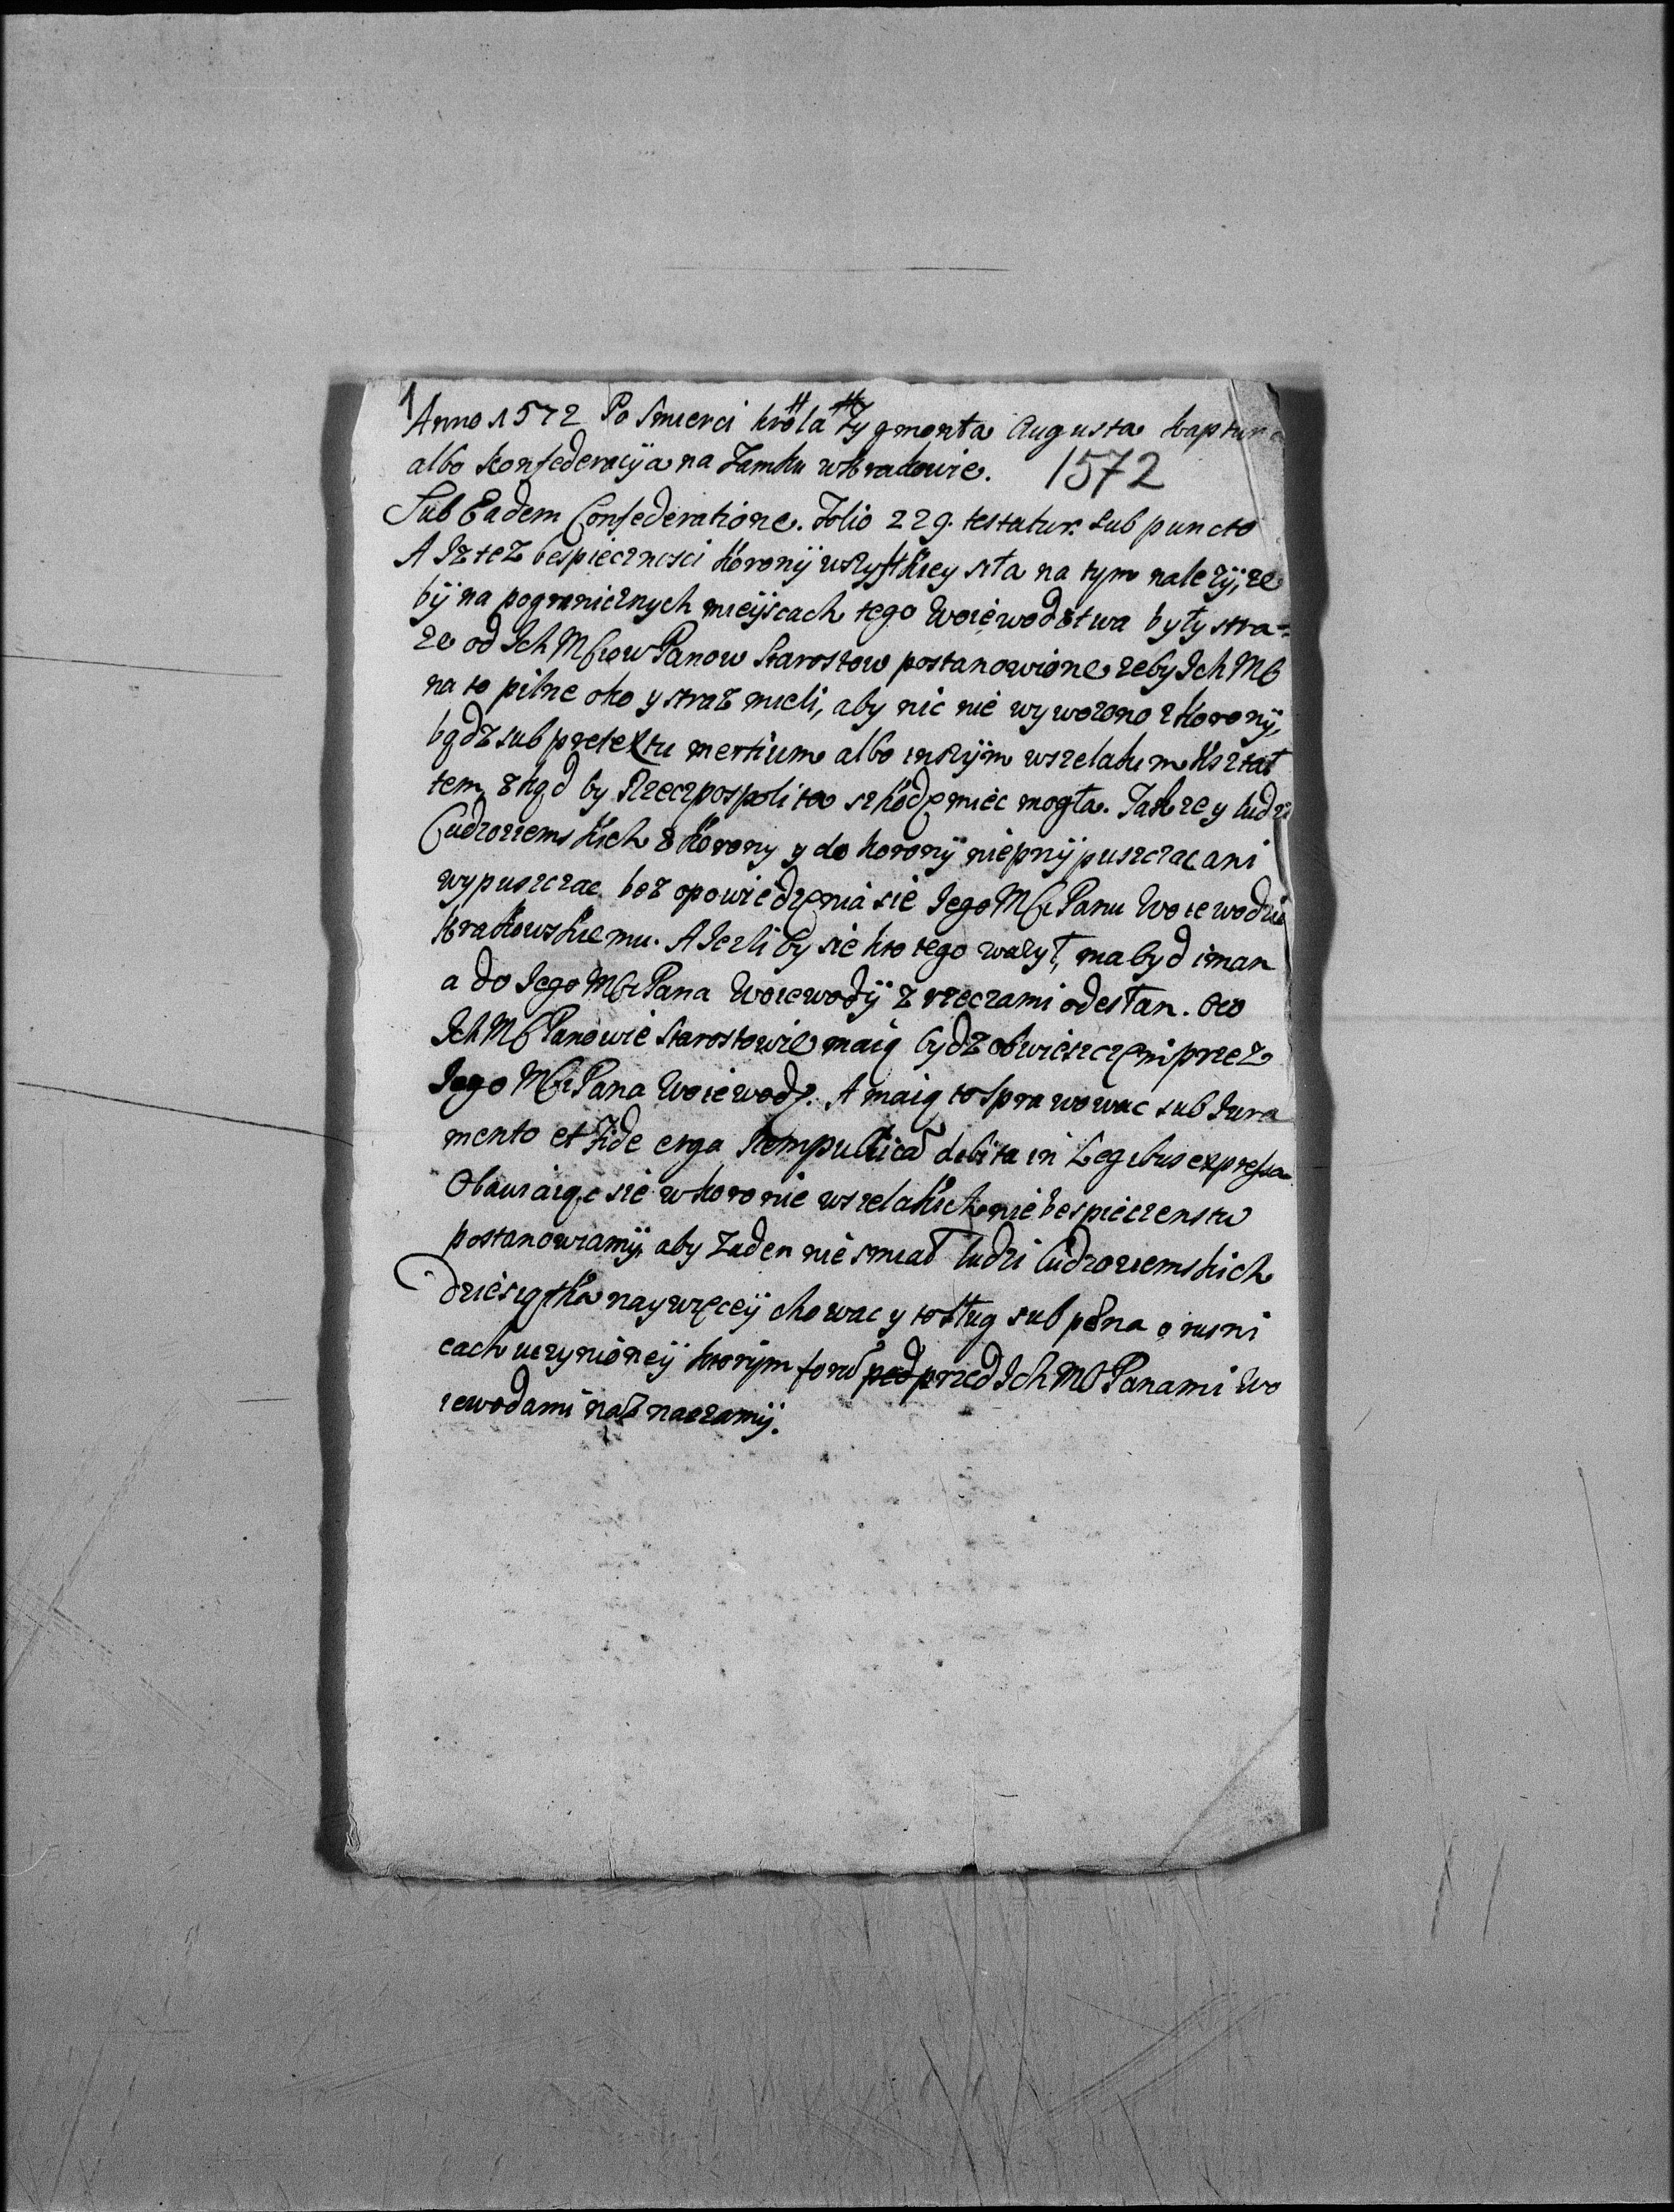 1
Anno 1572 Po Smierci krola Zygmonta Augusta kaptur
albo konfederacija na Zamku w krakowie. 1572
Sub Eadem Confederatione. Folio 229. testatur. sub puncto
A Iz tez bespiecznosci korony wszystkiey siła na tym nalezy, ze
by na pogranicznych mieyscach tego Woiewodztwa były stra=
ze od Ich Mściow Panow Starostow postanowione zeby Ich Mś
na to pilne oko y straz mieli, aby nic nie wywozono z Korony,
bądz sub pretextu mertium albo inszym wszelakim kształ
tem, zkąd by Rzeczpospolita szkodę miec mogła. Takze y ludzi
Cudzoziemskich z Korony y do korony nieprzypuszczac ani
wypuszczac bez opowiedzenia sie Iego Mści Panu Woiewodzie
krakowskiemu. A Iezli by sie kto tego wazył, ma byd iman
a do Iego Mści Pana Woiewody z rzeczami odesłan. Oco
Ich Mś Panowie Starostowie maią bydz obwieszczeni przez
Iego Mści Pana Woiewodę. A maią to sprawowac sub Iura
mento et Fide erga Rempublicā debita in Legibus expressa
Obawiaiąc sie w koronie wszelakich niebespieczenstw
postanowiamy, aby zaden nie smiał ludzi Cudzoziemskich
Dziesiątka naywięcey chowac y to sług sub pæna o rusni
cach uczynioney ktorym forū ped przed Ich Mś Panami Wo
iewodami naznaczamy.